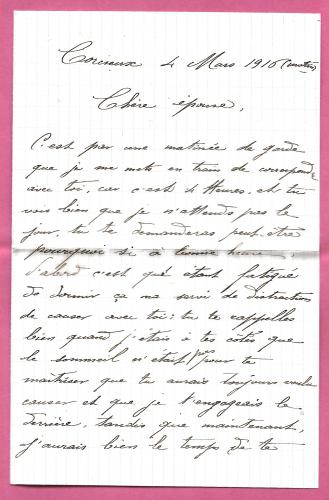 Corcieux 4 Mars 1916 (matin)
Chère épouse,
C'est par une matinée de garde
que je me mets en train de correspondre
avec toi, car c'est 4 heures, et tu
vois bien que je n'attends pas le
jour, tu te demanderas peut-être
pourquoi si à bonne heure,
d'abord c'est que étant fatigué
de dormir ça me servi de distraction
de causer avec toi : tu te rappelles
bien quand j'étais à tes côtés que
le sommeil n'était pas pour te
maitriser que tu aurais toujours voulu
causer et que je t'engageais le
derrière, tandis que maintenant,
j'aurais bien le temps de te